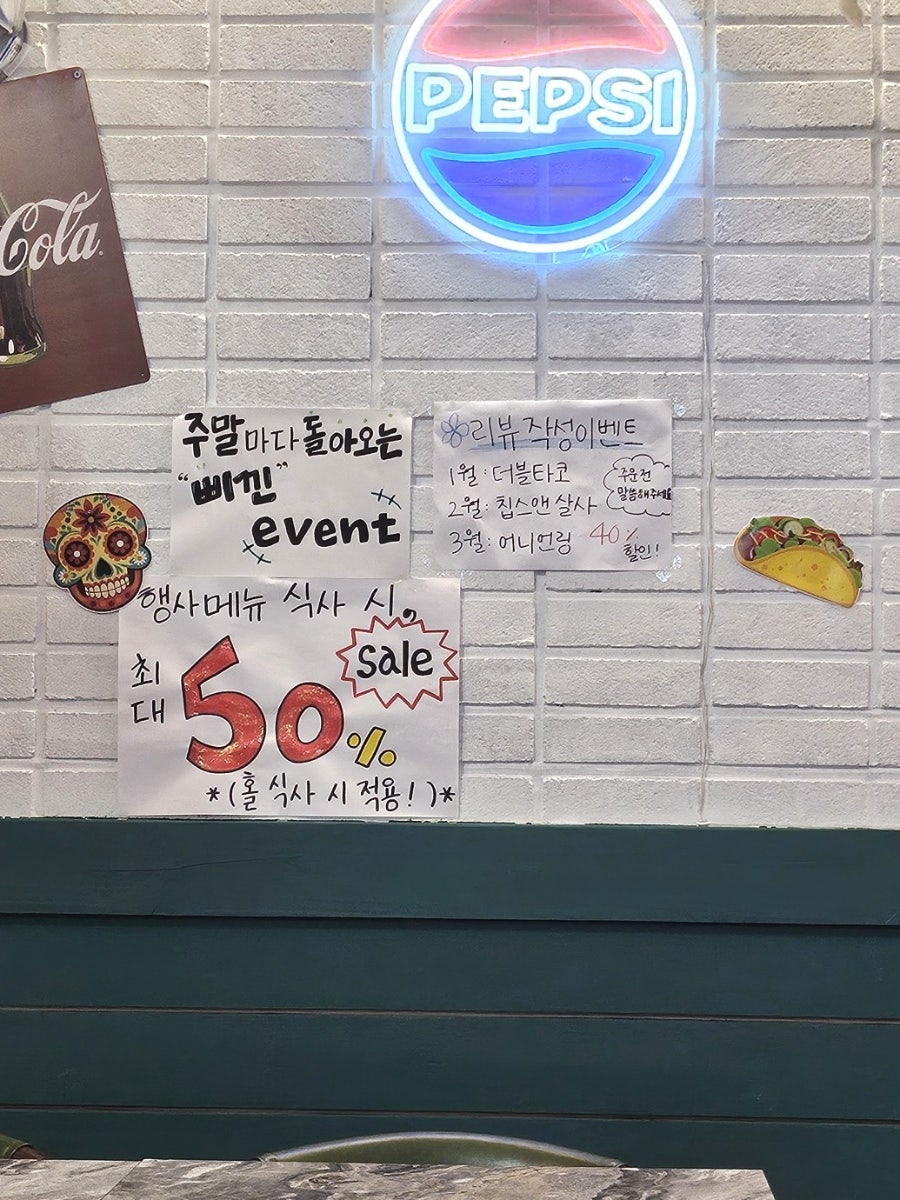 PEPSI
Cola
주말마다 돌아오는
"삐낀"
event
리뷰 작성이벤트
1월 : 더블타코
2월 : 칩스앤 살사
3월 : 어니언링
주문전
말씀해주세요
40%
할인!
행사메뉴 식사 시,
최대
50%
sale
*(홀 식사 시 적용!)*